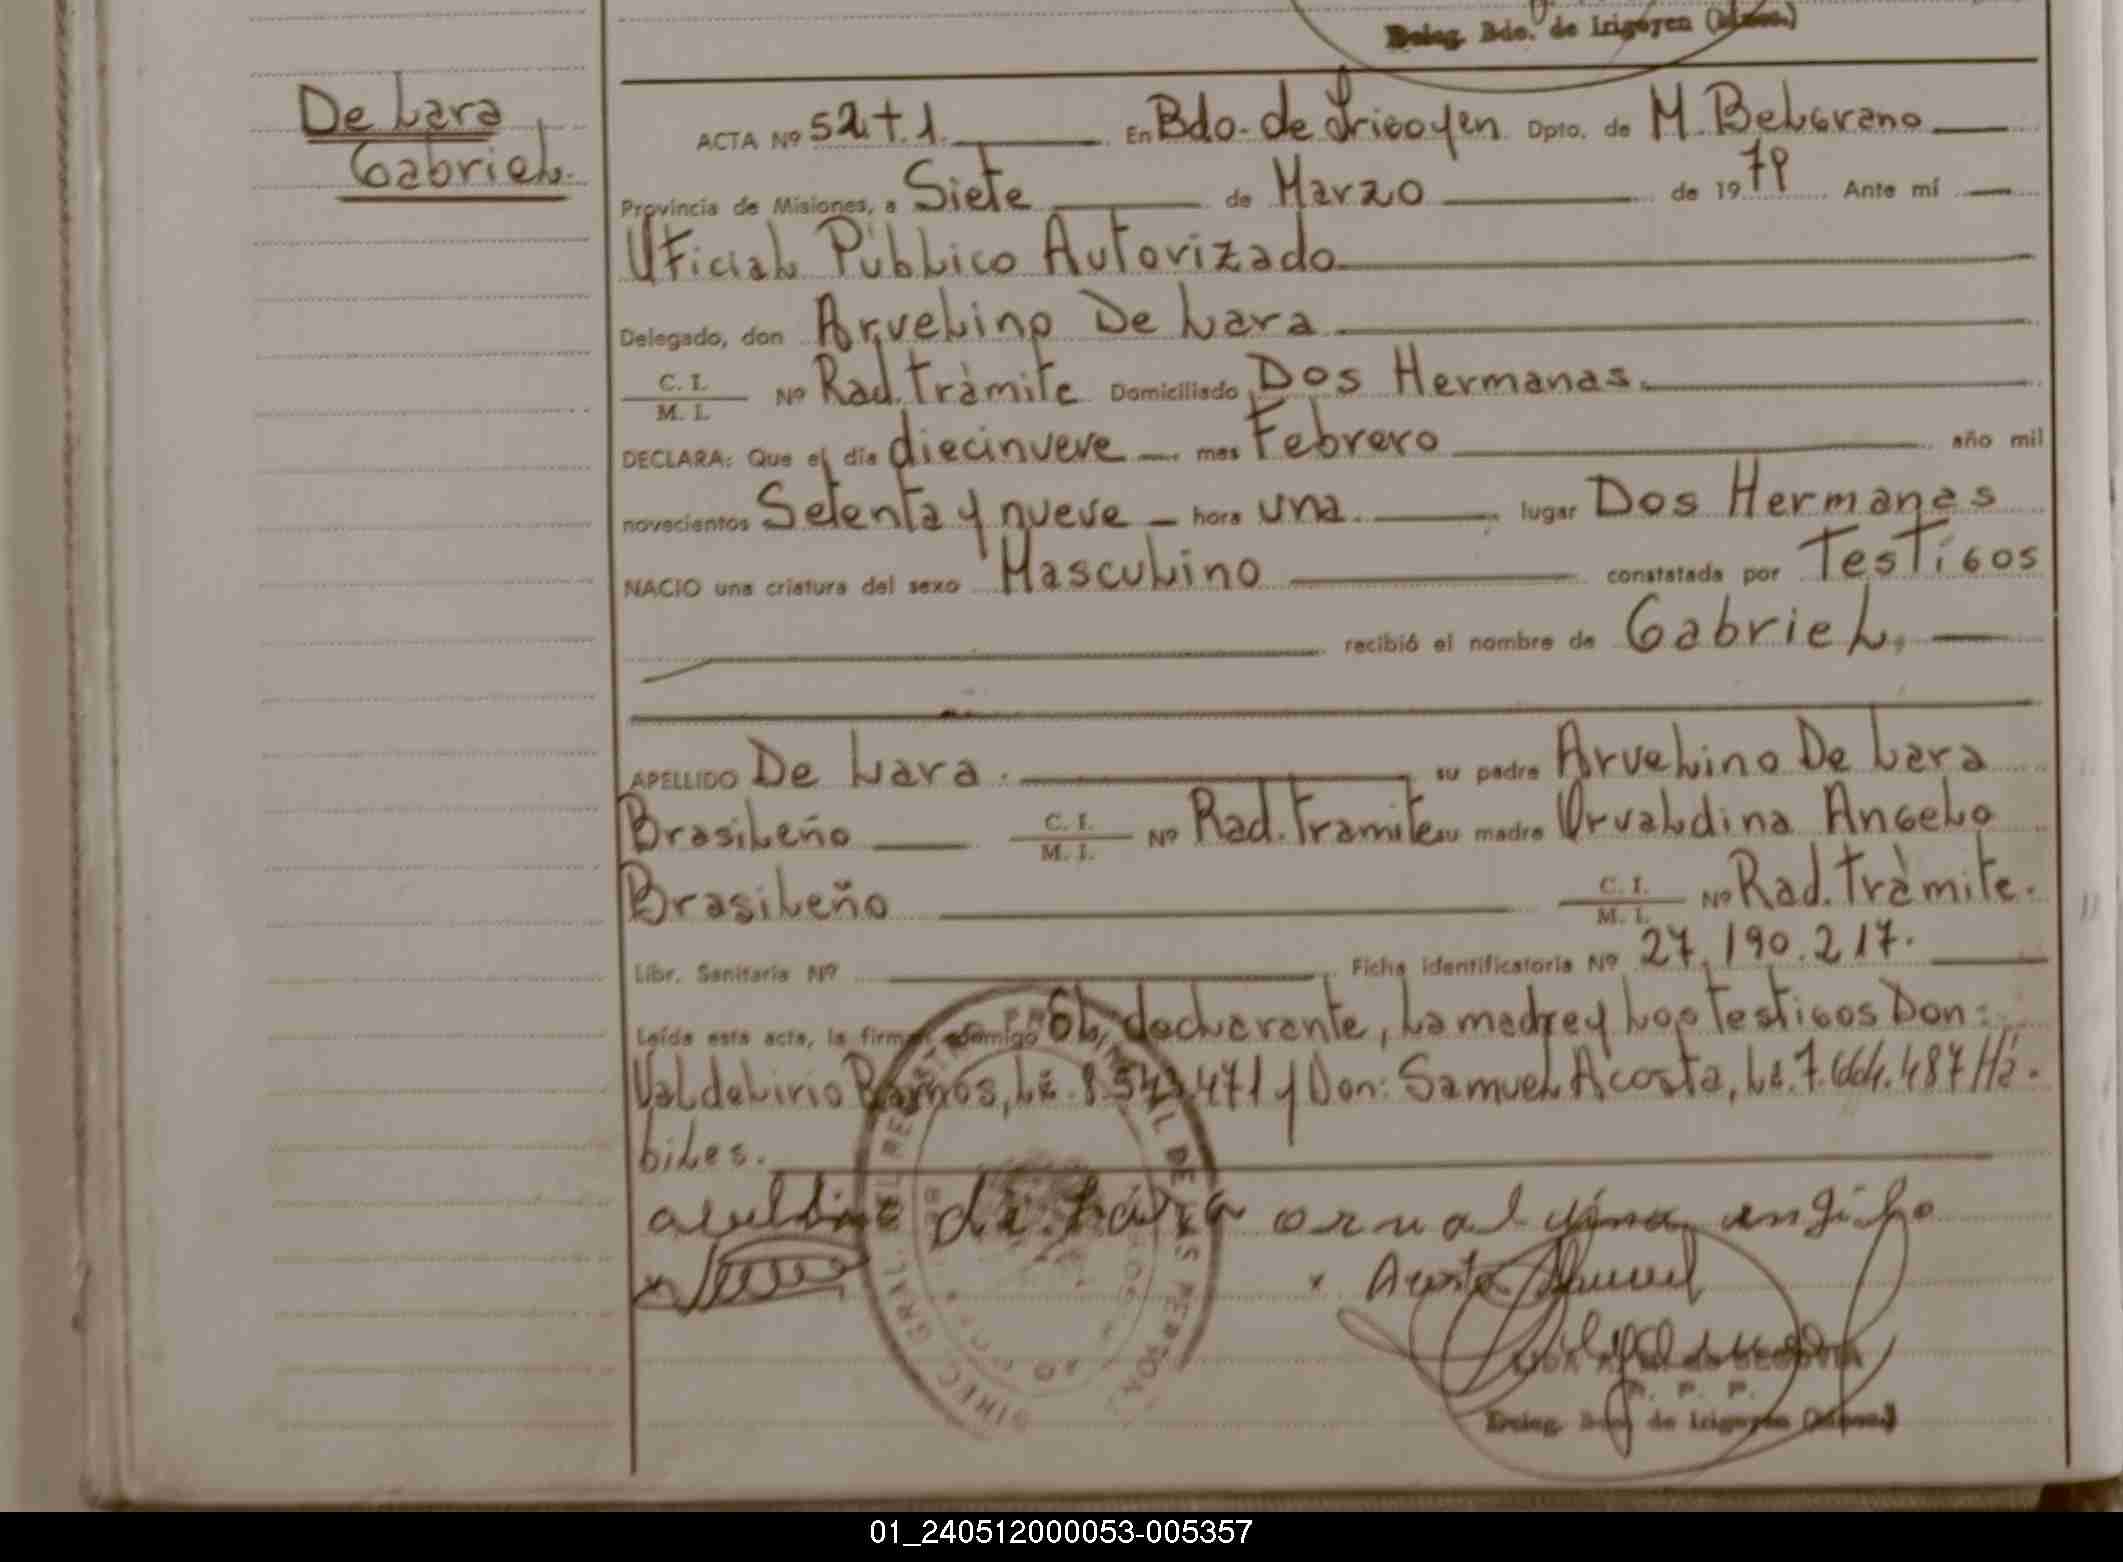 Deleg. Bdo. de Irigoyen (Mnes.)
De Lara
Gabriel.
ACTA Nº 52+1. En Bdo. de Irigoyen Dpto. de M. Belgrano
Provincia de Misiones, a Siete de Marzo de 1979 Ante mí
Oficial Público Autorizado
Delegado, don Arvelino De Lara
C. I. / M. I. Nº Rad. Tràmite Domiciliado Dos Hermanas.
DECLARA: Que el día diecinueve mes Febrero año mil
novecientos Setenta y nueve hora una lugar Dos Hermanas
NACIO una criatura del sexo Masculino constatada por Testigos
recibió el nombre de Gabriel.
APELLIDO De Lara. su padre Arvelino De Lara
Brasileño C. I. / M. I. Nº Rad. Tramite su madre Orvaldina Angelo
Brasileño C. I. / M. I. Nº Rad. Tràmite.
Libr. Sanitaria Nº Ficha identificatoria Nº 27.190.217.
Leída esta acta, la firman conmigo El declarante, la madre y los Testigos Don:
Valdelirio Ramos, Le. 8.542.471 y Don: Samuel Acosta, Le. 7.664.487 Há-
biles.
de Lara orualdina angilo
x Acosta Samuel
DIREC. GRAL. DEL REGISTRO PROVINCIAL DE LAS PERSONAS
P. P.
Deleg. Bdo. de Irigoyen (Mnes.)
01_240512000053-005357